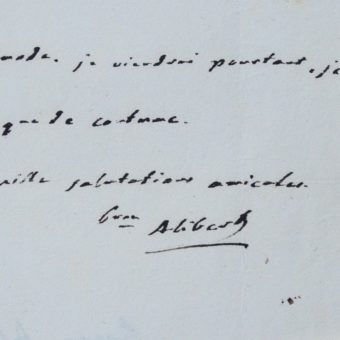 mode. je viendrai pourtant, je
que de coutume.
mille salutations amicales.
bon Alibert